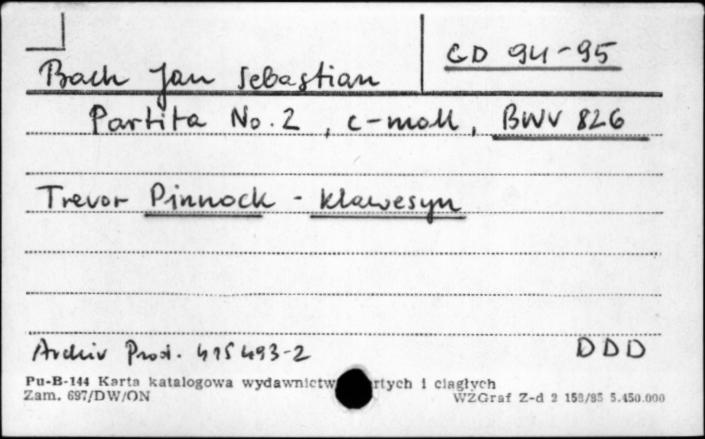 CD 94-95
Bach Jan Sebastian
Partita No. 2, c-moll, BWV 826
Trevor Pinnock - klawesyn
Archiv Prod. 415 493-2 DDD
Pu-B-144 Karta katalogowa wydawnictw i ciągłych
Zam. 697/DW/ON WZGraf Z-d 2 158/85 5.450.000